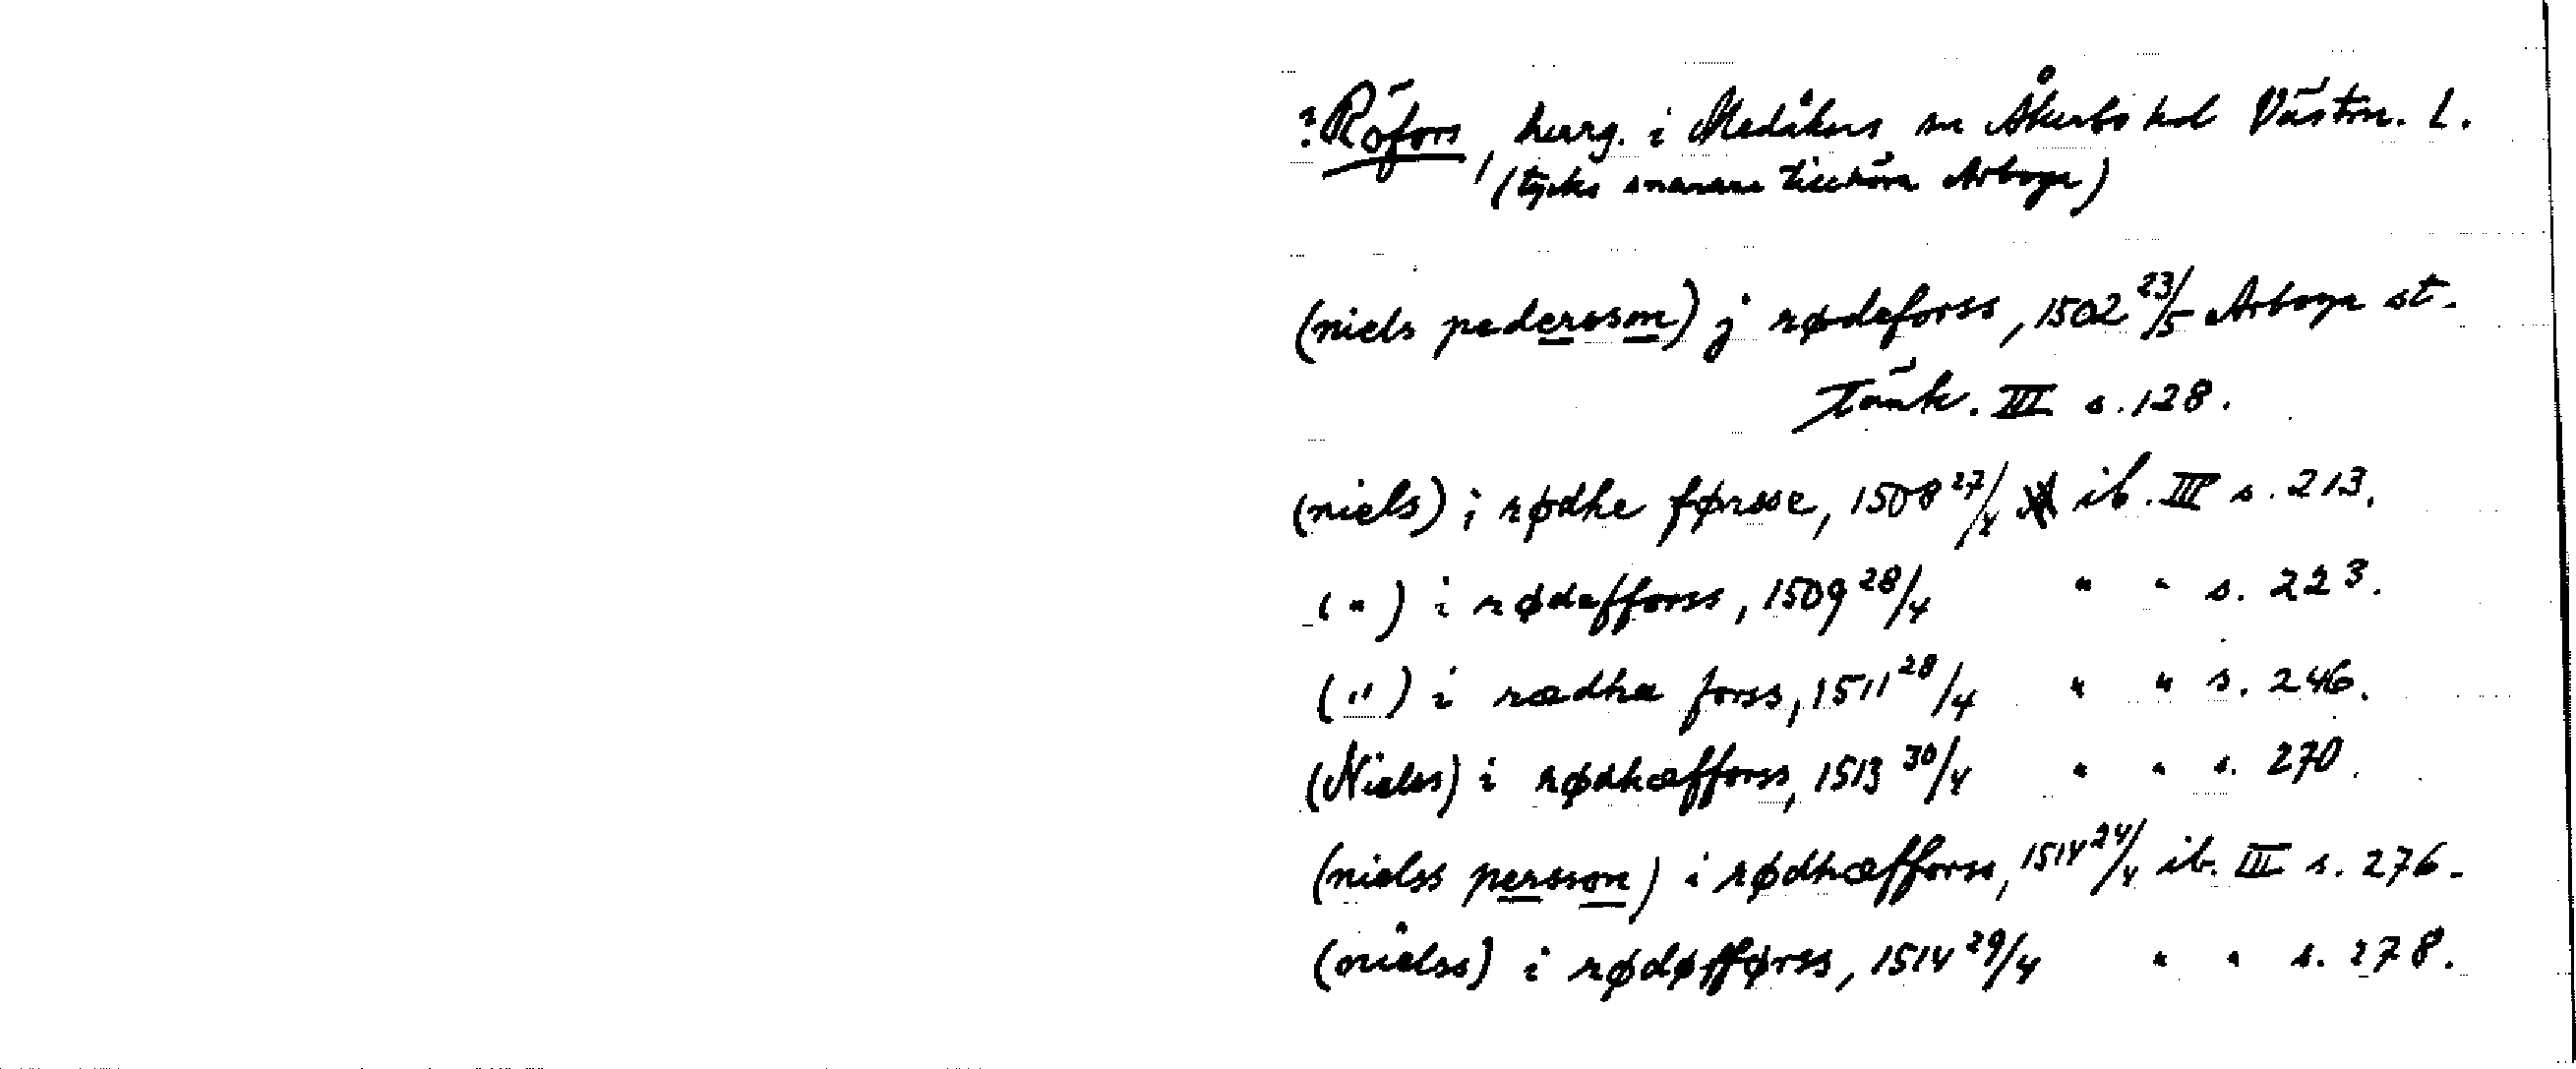 ?: Röfors, herrg. i Medåkers sn Åkerbo hd Västm. l.
(tycks snarare tillhöra Arboga)
(niels pedersson) j rødeforss, 1502 23/5 Arboga st.
Tänk. III s. 128.
(niels) i rødhe førsse, 1508 27/4 ib. III s. 213.
( " ) i rødefforss, 1509 28/4 " " s. 223.
( " ) i rædha forss, 1511 28/4 " " s. 246.
(Nielss) i rødhæfforss, 1513 30/4 " " s. 270.
(nielss persson) i rødhæfforss, 1514 24/4 ib. III s. 276.
(nielss) i rødøfførss, 1514 29/4 " " s. 278.